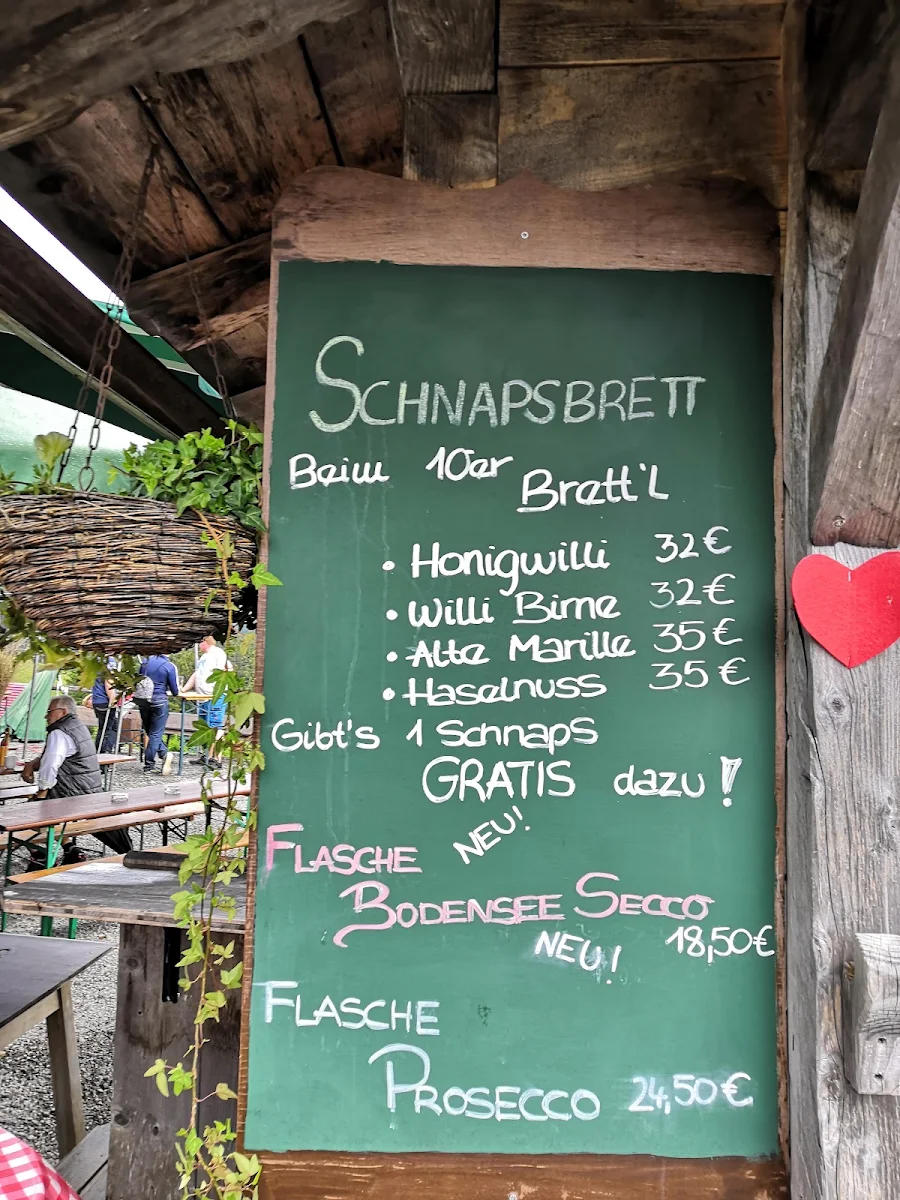 SCHNAPSBRETT
Beim 10er
Brett'L
• Honigwilli 32€
• Willi Birne 32€
• Alte Marille 35€
• Haselnuss 35€
Gibt's 1 Schnaps
GRATIS dazu!
NEU!
FLASCHE
BODENSEE SECCO
NEU! 18,50€
FLASCHE
PROSECCO 24,50€